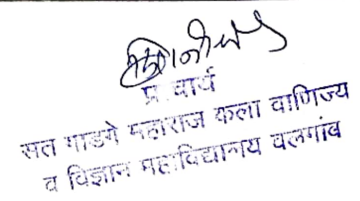 प्राचार्य
संत गाडगे महाराज कला वाणिज्य
व विज्ञान महाविद्यालय वलगांव